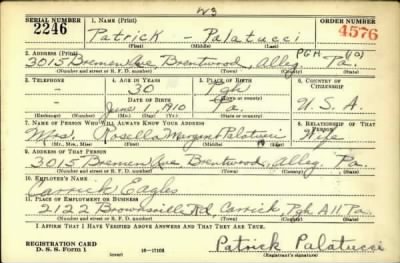 W3
SERIAL NUMBER 1. NAME (Print) ORDER NUMBER
2246 Patrick - Palatucci 4576
(First) (Middle) (Last)
2. ADDRESS (Print) PGH (10)
3015 Bremen Ave Brentwood, Alleg Pa.
(Number and street or R. F. D. number) (Town) (County) (State)
3. TELEPHONE 4. AGE IN YEARS 5. PLACE OF BIRTH 6. COUNTRY OF CITIZENSHIP
- 30 Pgh
DATE OF BIRTH (Town or county) U. S. A.
June 1, 1910 Pa.
(Exchange) (No.) (Mo.) (Day) (Yr.) (State or country)
7. NAME OF PERSON WHO WILL ALWAYS KNOW YOUR ADDRESS 8. RELATIONSHIP OF THAT PERSON
Mrs. Rosella Margaret Palatucci Wife
(Mr., Mrs., Miss) (First) (Middle) (Last)
9. ADDRESS OF THAT PERSON
3015 Bremen Ave Brentwood, Alleg Pa.
(Number and street or R. F. D. number) (Town) (County) (State)
10. EMPLOYER'S NAME
Carrick Eagles
11. PLACE OF EMPLOYMENT OR BUSINESS
2122 Brownsville Rd. Carrick Pgh All Pa.
(Number and street or R. F. D. number) (Town) (County) (State)
I AFFIRM THAT I HAVE VERIFIED ABOVE ANSWERS AND THAT THEY ARE TRUE.
REGISTRATION CARD
D. S. S. Form 1 (over) 16-17105 Patrick Palatucci
(Registrant's signature)